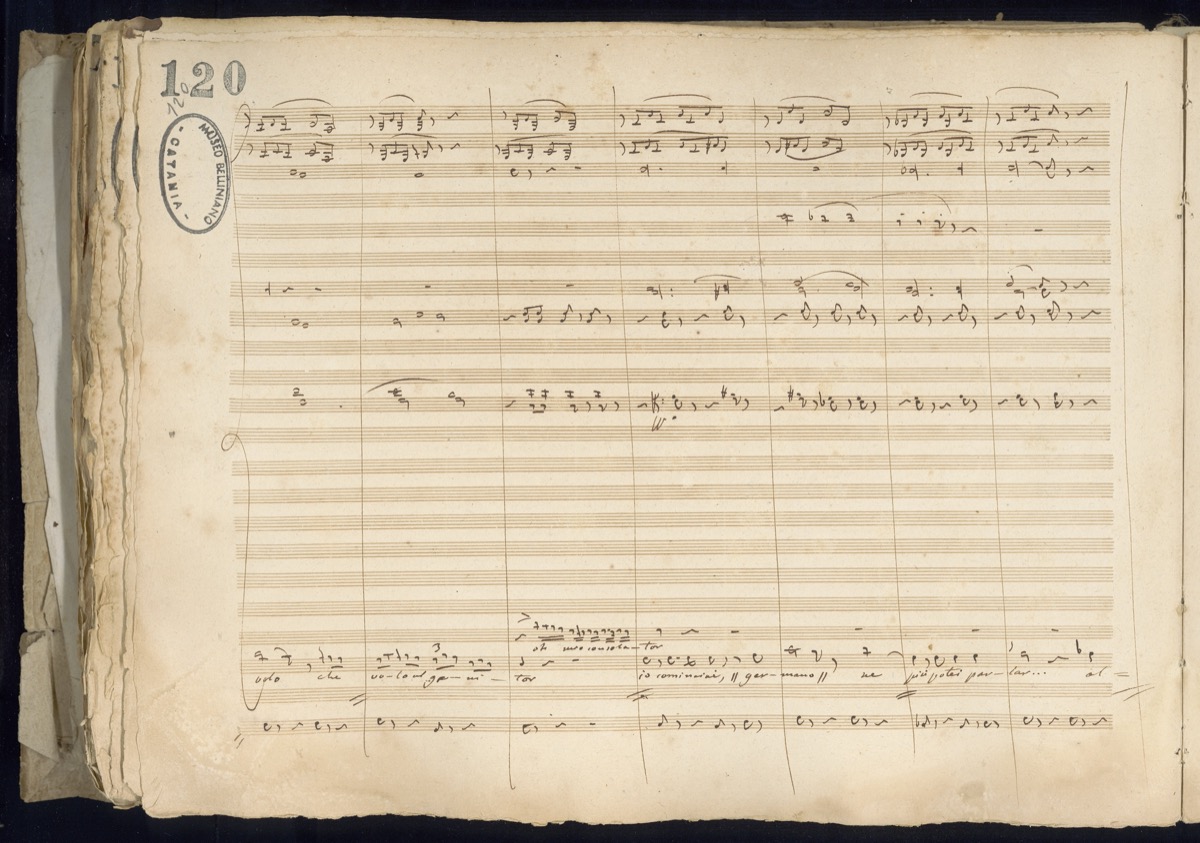 120
120
MUSEO BELLINIANO
- CATANIA -
oh mio consola - tor
volo che vo - la al ge - ni - tor io cominciai, // germano // ne più potei par - lar... al =
3